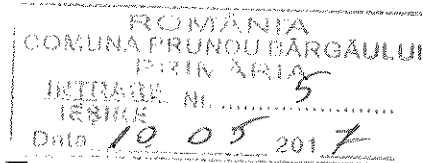 ROMÂNIA
COMUNA PRUNDU BÂRGĂULUI
PRIMĂRIA
INTRARE
IEȘIRE Nr. 5
Data 10 05 2017